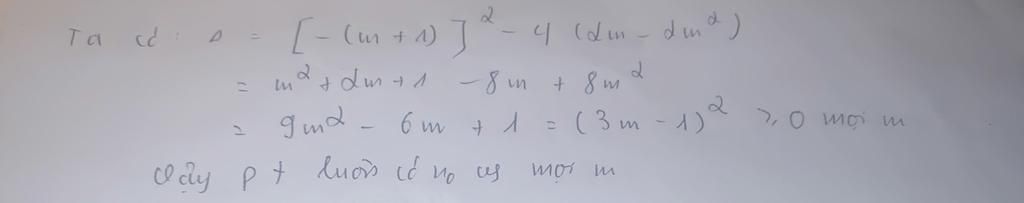 Ta có: Δ = [-(m+1)]² - 4(2m - 2m²)
= m² + 2m + 1 - 8m + 8m²
= 9m² - 6m + 1 = (3m - 1)² ≥ 0 mọi m
Vậy pt luôn có no vs mọi m